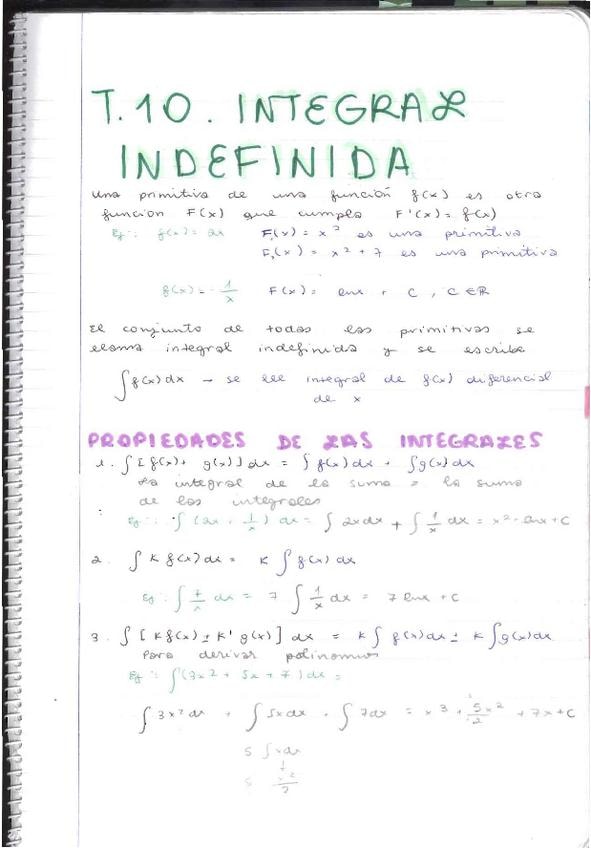 T.10. INTEGRAL
INDEFINIDA
Una primitiva de una función f(x) es otra
función F(x) que cumpla F'(x) = f(x)
Ej: f(x) = 2x F₁(x) = x² es una primitiva
F₂(x) = x² + 7 es una primitiva
f(x) = 1/x F(x) = lnx + C, C∈ℝ
El conjunto de todas las primitivas se
llama integral indefinida y se escribe
∫f(x)dx → se lee integral de f(x) diferencial
de x
PROPIEDADES DE LAS INTEGRALES
1. ∫[f(x) + g(x)]dx = ∫f(x)dx + ∫g(x)dx
La integral de la suma = la suma
de las integrales
Ej: ∫(2x + 1/x) dx = ∫2xdx + ∫1/x dx = x² + lnx + C
2. ∫K f(x) dx = K ∫f(x) dx
Ej: ∫7/x dx = 7 ∫1/x dx = 7 lnx + C
3. ∫[K f(x) ± K' g(x)] dx = K∫f(x)dx ± K∫g(x)dx
Para derivar polinomios
Ej: ∫(3x² + 5x + 7)dx =
∫3x²dx + ∫5xdx + ∫7dx = x3 + 5x²/2 + 7x + C
5 ∫xdx
↓
5 x²/2